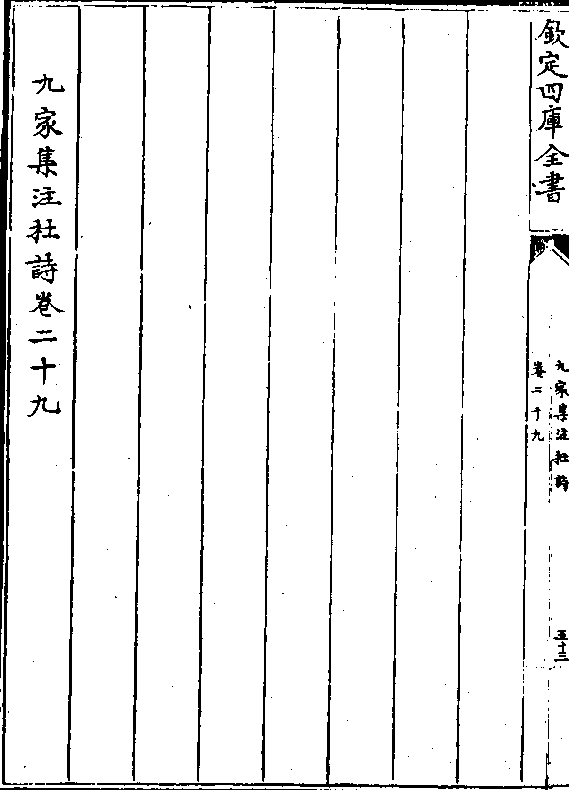 欽定四庫全書
九家集注杜詩
卷二十九
五十三
九家集注杜詩卷二十九